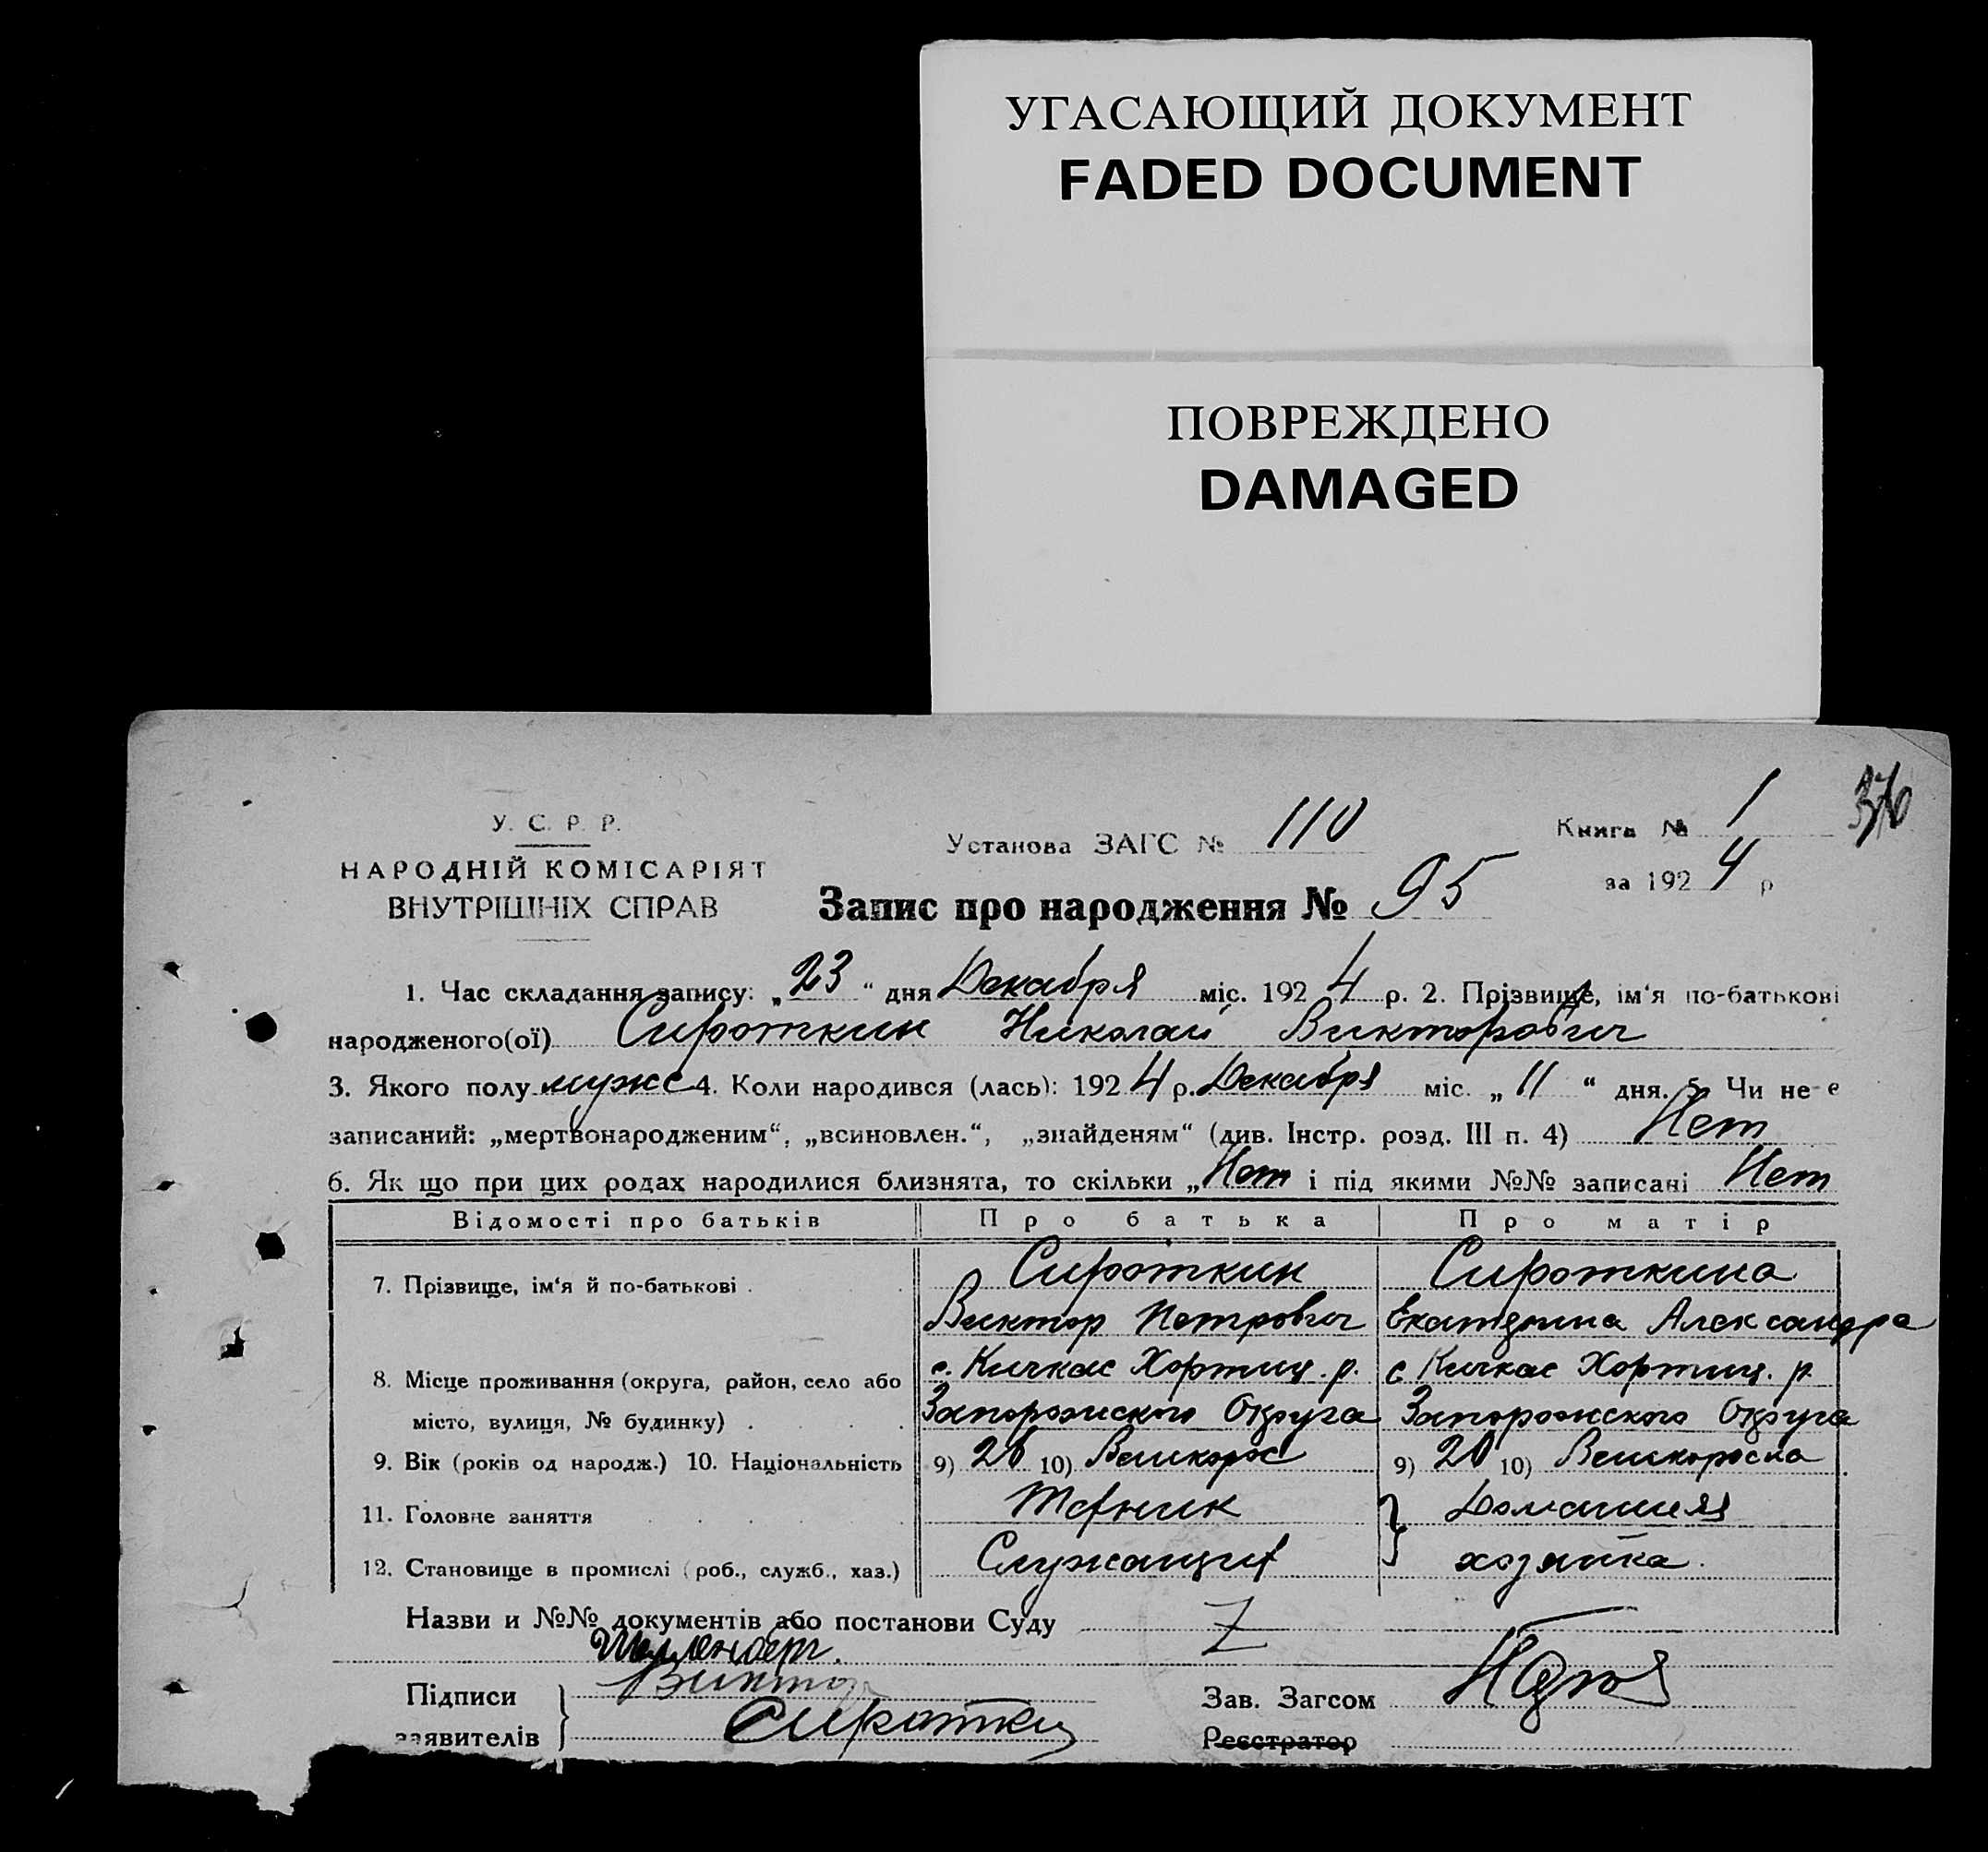 УГАСАЮЩИЙ ДОКУМЕНТ
FADED DOCUMENT
ПОВРЕЖДЕНО
DAMAGED
У. С. Р. Р.
НАРОДНІЙ КОМІСАРІЯТ
ВНУТРІШНІХ СПРАВ
Установа ЗАГС № 110
Книга № 1
за 1924 р
Запис про народження № 95
1. Час складання запису: „23“ дня Декабря міс. 1924 р. 2. Прізвище, ім'я по-батькові
народженого(ої) Сироткин Николай Викторович
3. Якого полу мужс 4. Коли народився (лась): 1924 р. Декабря міс. „11“ дня. 5. Чи не е
записаний: „мертвонародженим“, „всиновлен.“, „знайденям“ (див. Інстр. розд. III п. 4) Нет
6. Як що при цих родах народилися близнята, то скільки „Нет і під якими №№ записані Нет
Відомості про батьків Про батька Про матір
7. Прізвище, ім'я й по-батькові . Сироткин Сироткина
Виктор Петрович Екатерина Александра
8. Місце проживання (округа, район, село або с. Кичкас Хортиц. р. с Кичкас Хортиц. р.
місто, вулиця, № будинку) . Запорожского Округа Запорожского Округа
9. Вік (років од народж.) 10. Національність 9) 26 10) Великорос 9) 20 10) Великороска
11. Головне заняття Домашняя
12. Становище в промислі (роб., служб., хаз.) Служащий хозяйка.
Назви и №№ документів або постанови Суду Z
Підписи Виктор
заявителів Сироткин
Зав. Загсом
Реєстратор